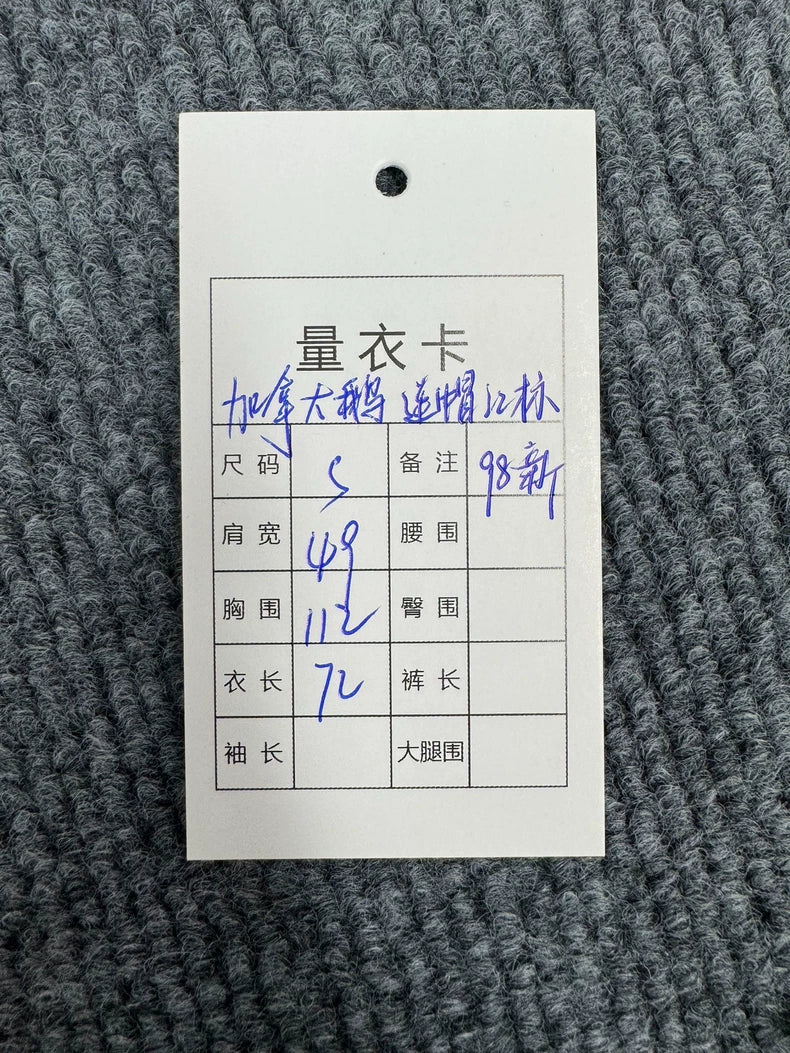 量衣卡
加拿大鹅 连帽红标
尺码 S 备注 98新
肩宽 49 腰围
胸围 112 臀围
衣长 72 裤长
袖长 大腿围